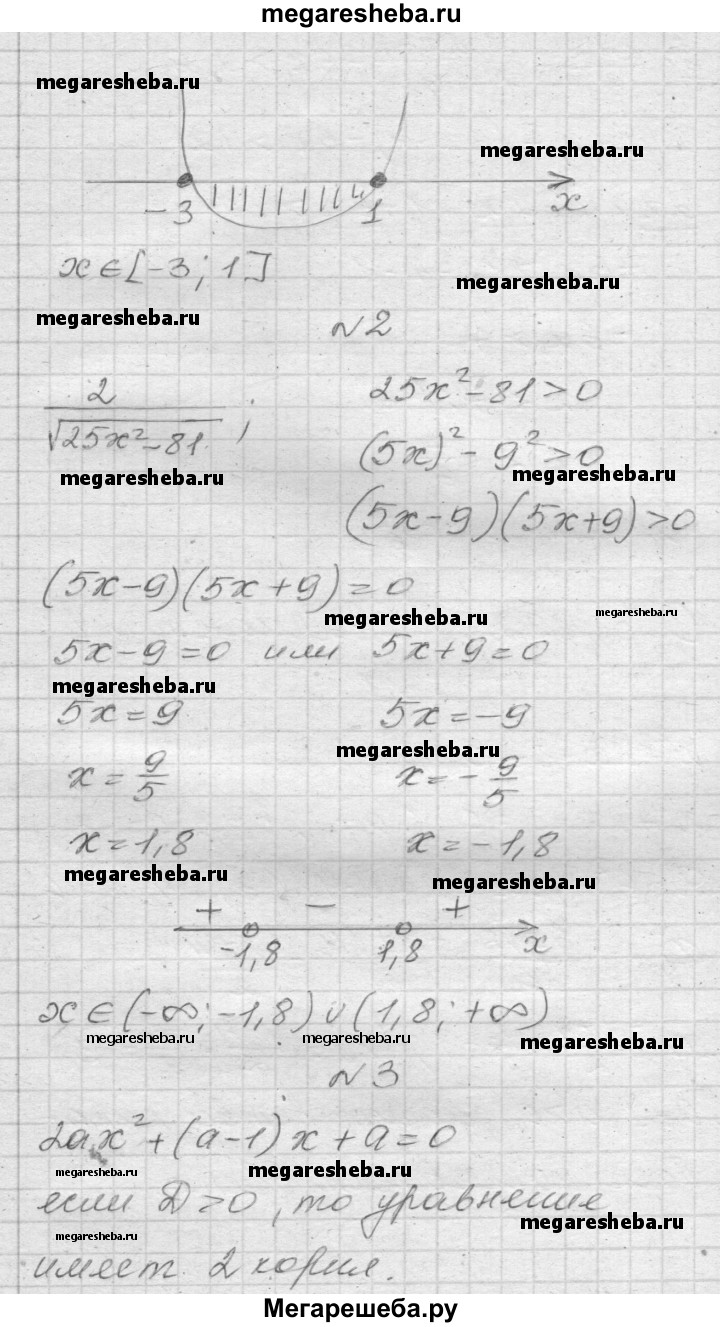 megaresheba.ru
megaresheba.ru
megaresheba.ru
-3 1 x
x∈[-3; 1]
megaresheba.ru
megaresheba.ru
№2
2/√(25x²-81) ; 25x²-81>0
(5x)²-9²>0
megaresheba.ru
megaresheba.ru
(5x-9)(5x+9)>0
(5x-9)(5x+9)=0
megaresheba.ru
megaresheba.ru
5x-9=0 или 5x+9=0
megaresheba.ru
5x=9 5x=-9
megaresheba.ru
x=9/5 x=-9/5
x=1,8 x=-1,8
megaresheba.ru
megaresheba.ru
+ - +
-1,8 1,8 x
x∈(-∞; -1,8)∪(1,8; +∞)
megaresheba.ru megaresheba.ru
megaresheba.ru
№3
2ax²+(a-1)x+a=0
megaresheba.ru
megaresheba.ru
если D>0, то уравнение
megaresheba.ru
megaresheba.ru
имеет 2 корня.
Мегарешеба.ру